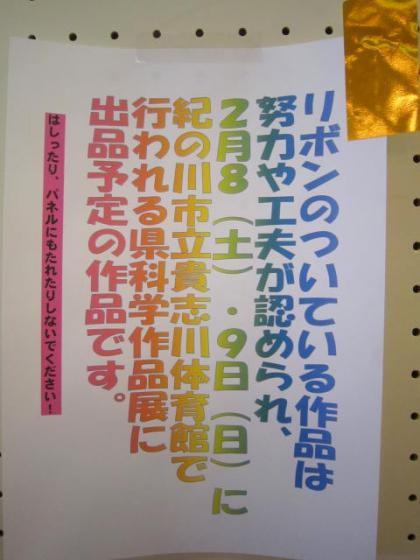 リボンのついている作品は
努力や工夫が認められ、
2月8（土）・9日（日）に
紀の川市立貴志川体育館で
行われる県科学作品展に
出品予定の作品です。
はしったり、パネルにもたれたりしないでください！